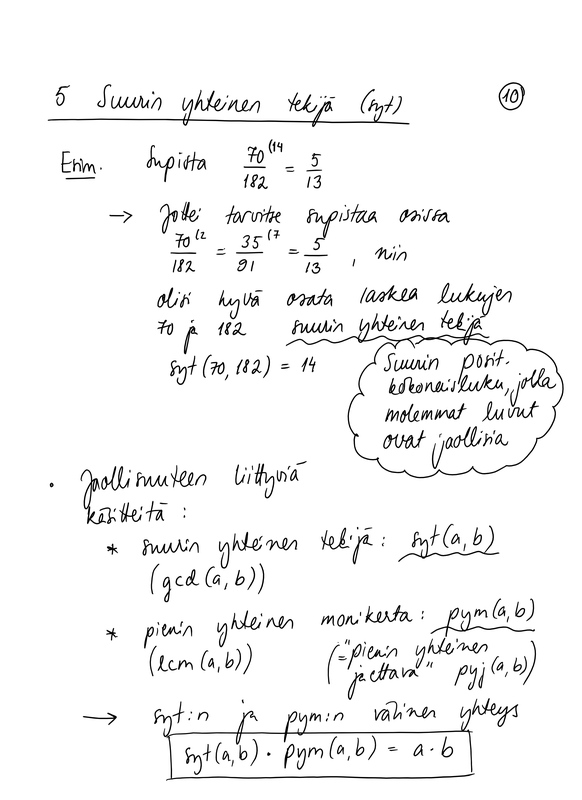 5 Suurin yhteinen tekijä (syt)
10
Esim. Supista 70/182 (14 = 5/13
→ Jottei tarvitse supistaa osissa
70/182 (2 = 35/91 (7 = 5/13 , niin
olisi hyvä osata laskea lukujen
70 ja 182 suurin yhteinen tekijä
syt(70, 182) = 14
Suurin posit.
kokonaisluku, jolla
molemmat luvut
ovat jaollisia
• Jaollisuuteen liittyviä
käsitteitä :
* suurin yhteinen tekijä : syt(a,b)
(gcd(a,b))
* pienin yhteinen monikerta : pym(a,b)
(lcm(a,b))
(="pienin yhteinen
jaettava" pyj(a,b))
→ syt:n ja pym:n välinen yhteys
syt(a,b) · pym(a,b) = a·b